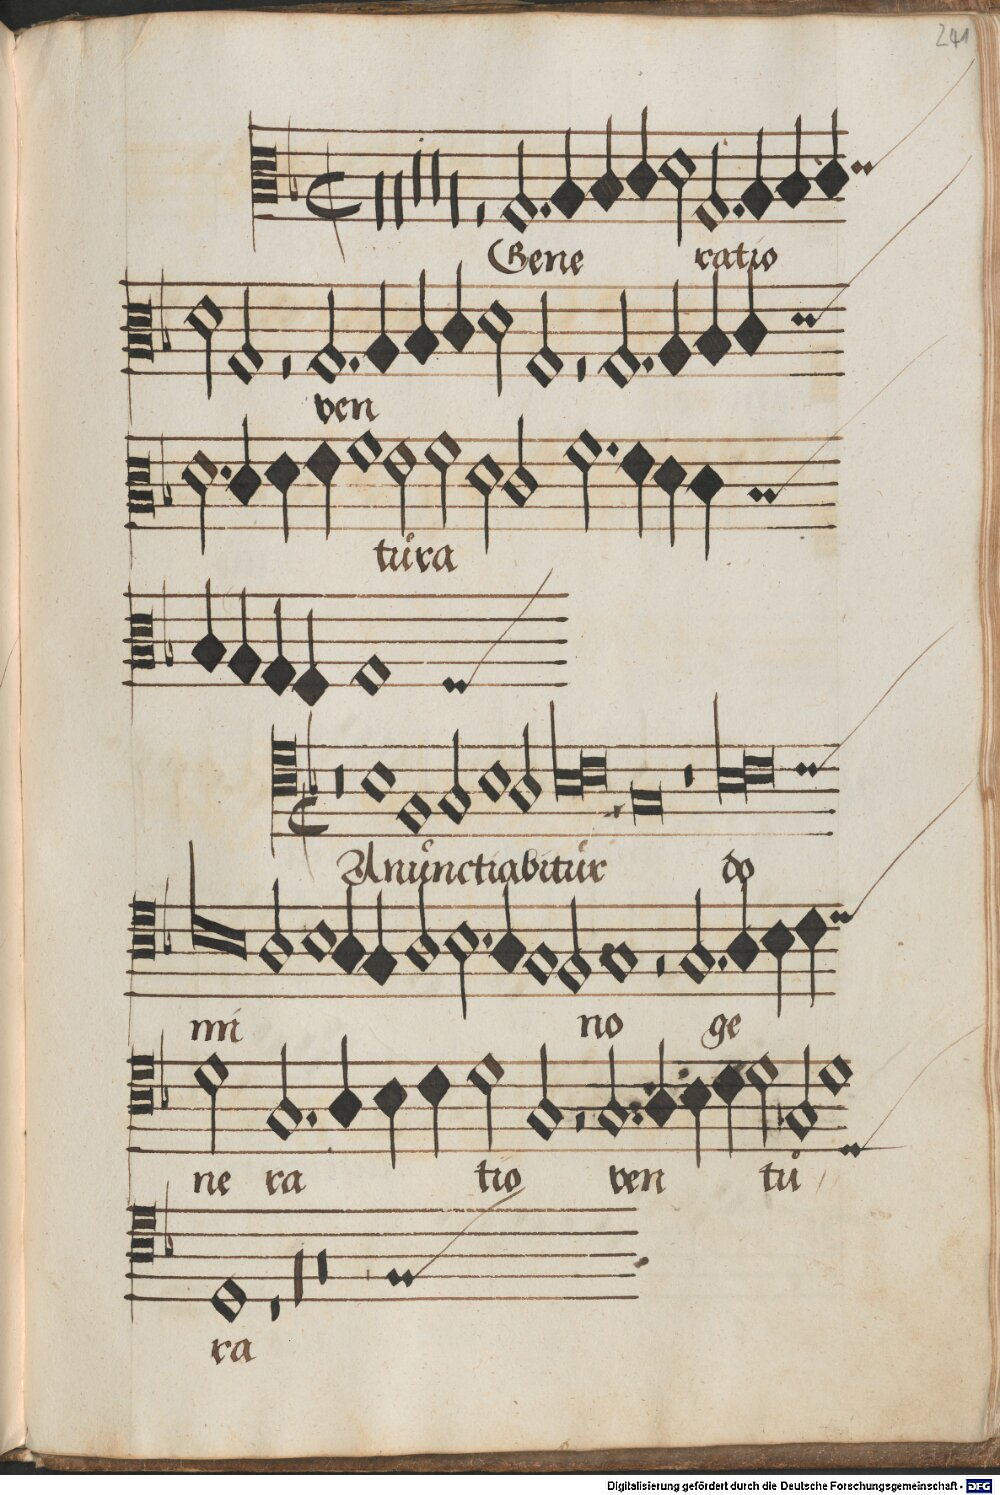 241
Gene ratio
ven
tůra
Anůnctiabitůr do
mi no ge
ne ra tio ven tů
ra
Digitalisierung gefördert durch die Deutsche Forschungsgemeinschaft - DFG